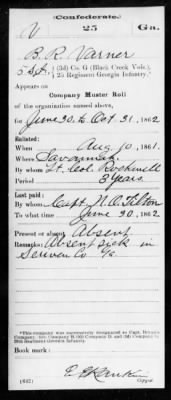 Confederate.
V 25 Ga.
B. R. Varner
(3d) Co. G (Black Creek Vols.),
25 Regiment Georgia Infantry.*
Appears on
Company Muster Roll
of the organization named above,
for June 30 to Oct 31, 1862
Enlisted:
When Aug 10, 1861
Where Savannah
By whom Lt. Col. Rockwell
Period 3 Years
Last paid:
By whom Capt. N. O. Tilton
To what time June 30, 1862
Present or absent Absent
Remarks: Absent sick in
Scriven Co Ga
*This company was successively designated as Capt. 
Company,
25th Regiment Georgia Infantry.
Book mark:
(642)
Copyist.